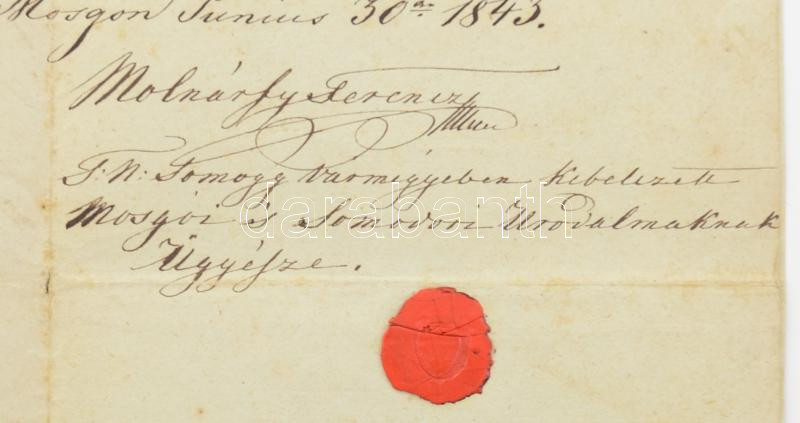 Mosgon Junius 30án 1843.
Molnárfy Ferencz
T: N: Somogy Vármegyében Kebelezett
Mosgói és Somodori Urodalmaknak
Ügyésze.
darabanth